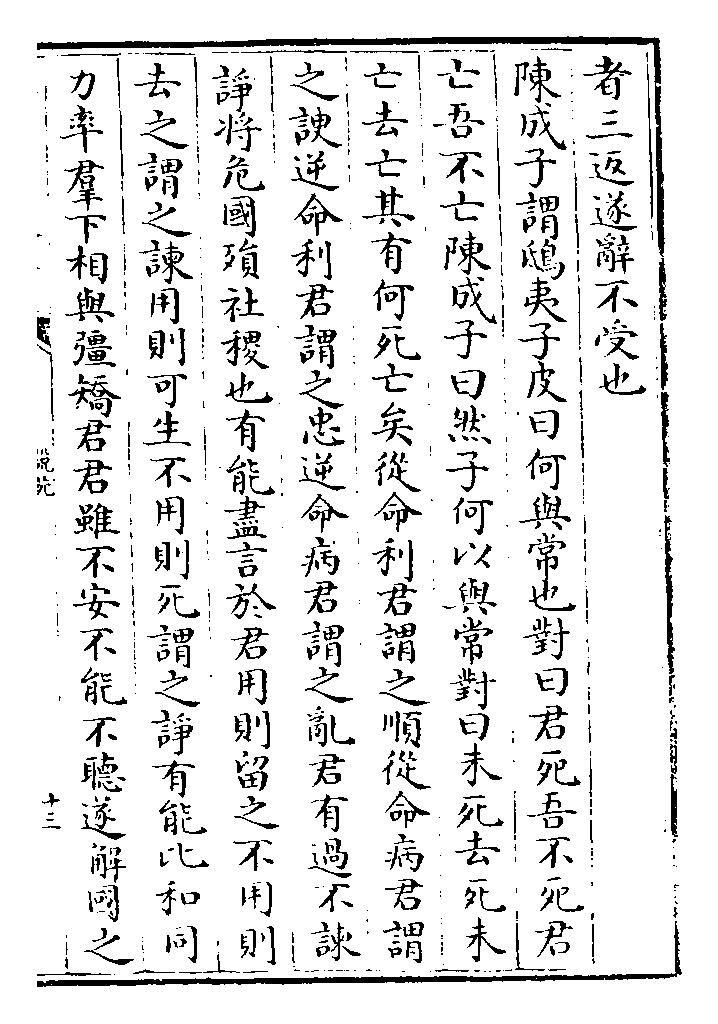 者三返遂辭不受也
陳成子謂鴟夷子皮曰何與常也對曰君死吾不死君
亡吾不亡陳成子曰然子何以與常對曰未死去死未
亡去亡其有何死亡矣從命利君謂之順從命病君謂
之諛逆命利君謂之忠逆命病君謂之亂君有過不諫
諍將危國殞社稷也有能盡言於君用則留之不用則
去之謂之諫用則可生不用則死謂之諍有能比和同
力率羣下相與彊矯君君雖不安不能不聽遂解國之
說苑
十三